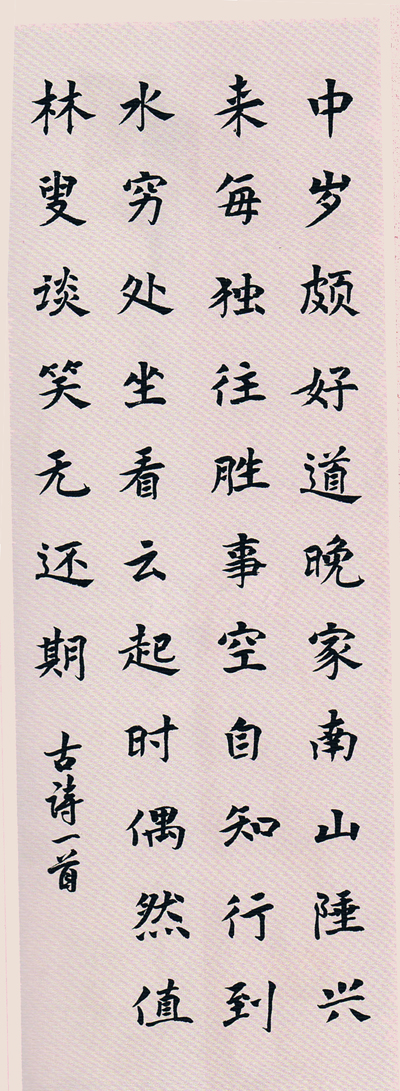 中岁颇好道晚家南山陲兴
来每独往胜事空自知行到
水穷处坐看云起时偶然值
林叟谈笑无还期
古诗一首